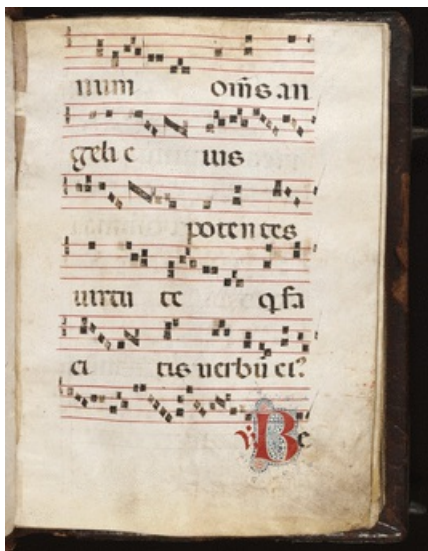 num om̄s an
geli e ius
potentes
uirtu te q̄ fa
ci tis uerbū ei?
℣ Be